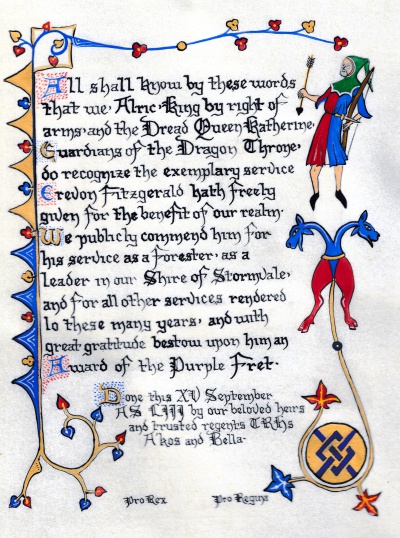 All shall know by these words
that we, Alric, King by right of
arms, and the Dread Queen Katherine,
Guardians of the Dragon Throne,
do recognize the exemplary service
Crevon Fitzgerald hath freely
given for the benefit of our realm.
We publicly commend him for
his service as a forester, as a
leader in our Shire of Stormvale,
and for all other services rendered
lo these many years, and with
great gratitude bestow upon him an
Award of the Purple Fret.
Done this XV September
AS LIII by our beloved heirs
and trusted regents TRHs
Akos and Bella.
Pro Rex Pro Regina